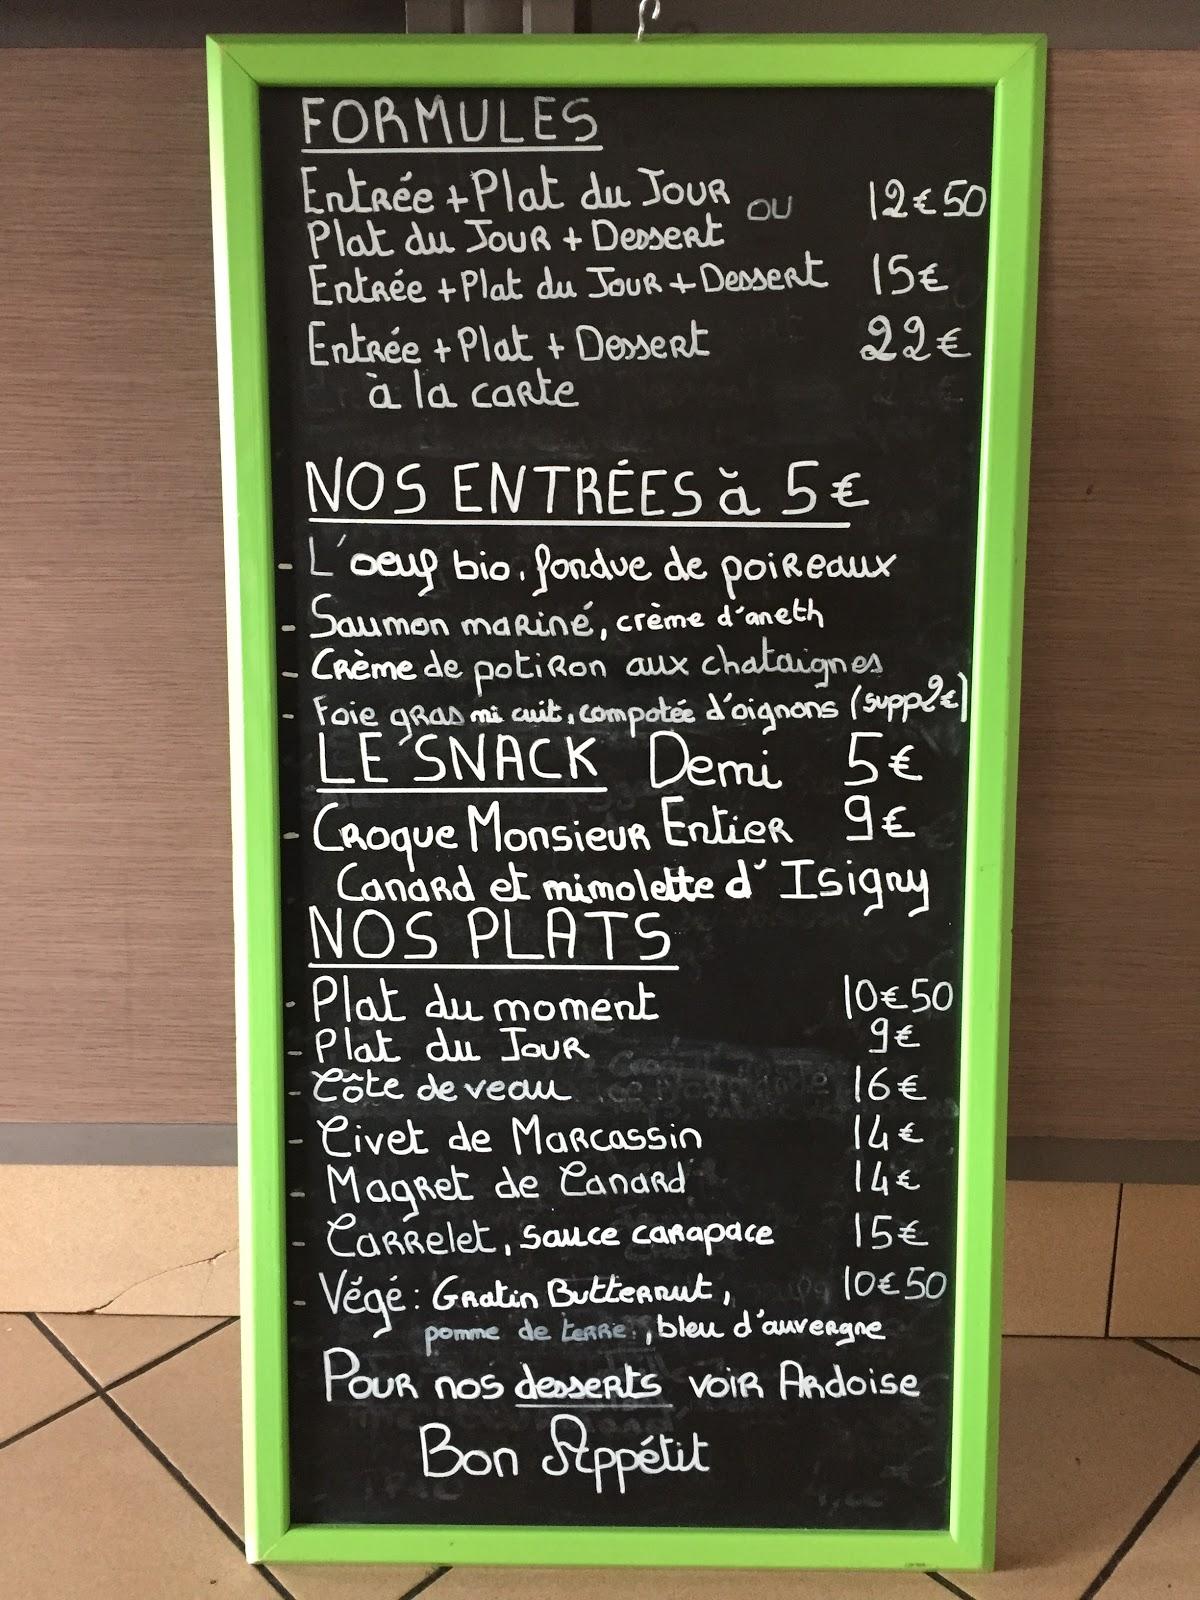 FORMULES
Entrée + Plat du Jour ou 12€50
Plat du Jour + Dessert
Entrée + Plat du Jour + Dessert 15€
Entrée + Plat + Dessert 22€
à la carte
NOS ENTRÉES à 5€
- L'oeuf bio, fondue de poireaux
- Saumon mariné, crème d'aneth
- Crème de potiron aux chataignes
- Foie gras mi cuit, compotée d'oignons (supp 2€)
LE SNACK Demi 5€
- Croque Monsieur Entier 9€
Canard et mimolette d'Isigny
NOS PLATS
- Plat du moment 10€50
- Plat du Jour 9€
- Côte de veau 16€
- Civet de Marcassin 14€
- Magret de Canard 14€
- Carrelet, sauce carapace 15€
- Végé : Gratin Butternut, 10€50
pomme de terre, bleu d'auvergne
Pour nos desserts voir Ardoise
Bon Appétit